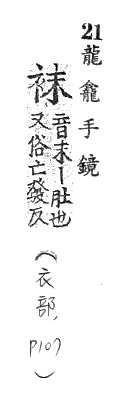 21 龍龕手鏡
袜音末ー肚也
又俗亡發反
（衣部, P107）